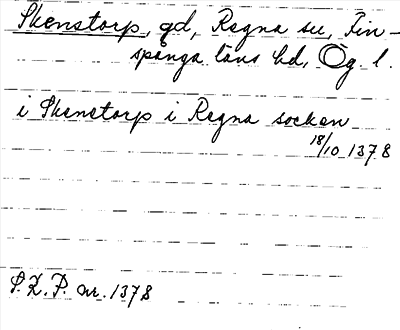 Skenstorp, gd, Regna sn, Fin-
spånga läns hd, Ög. l.
i Skenstorp i Regna socken
18/10 1378
S.R.P. nr. 1378